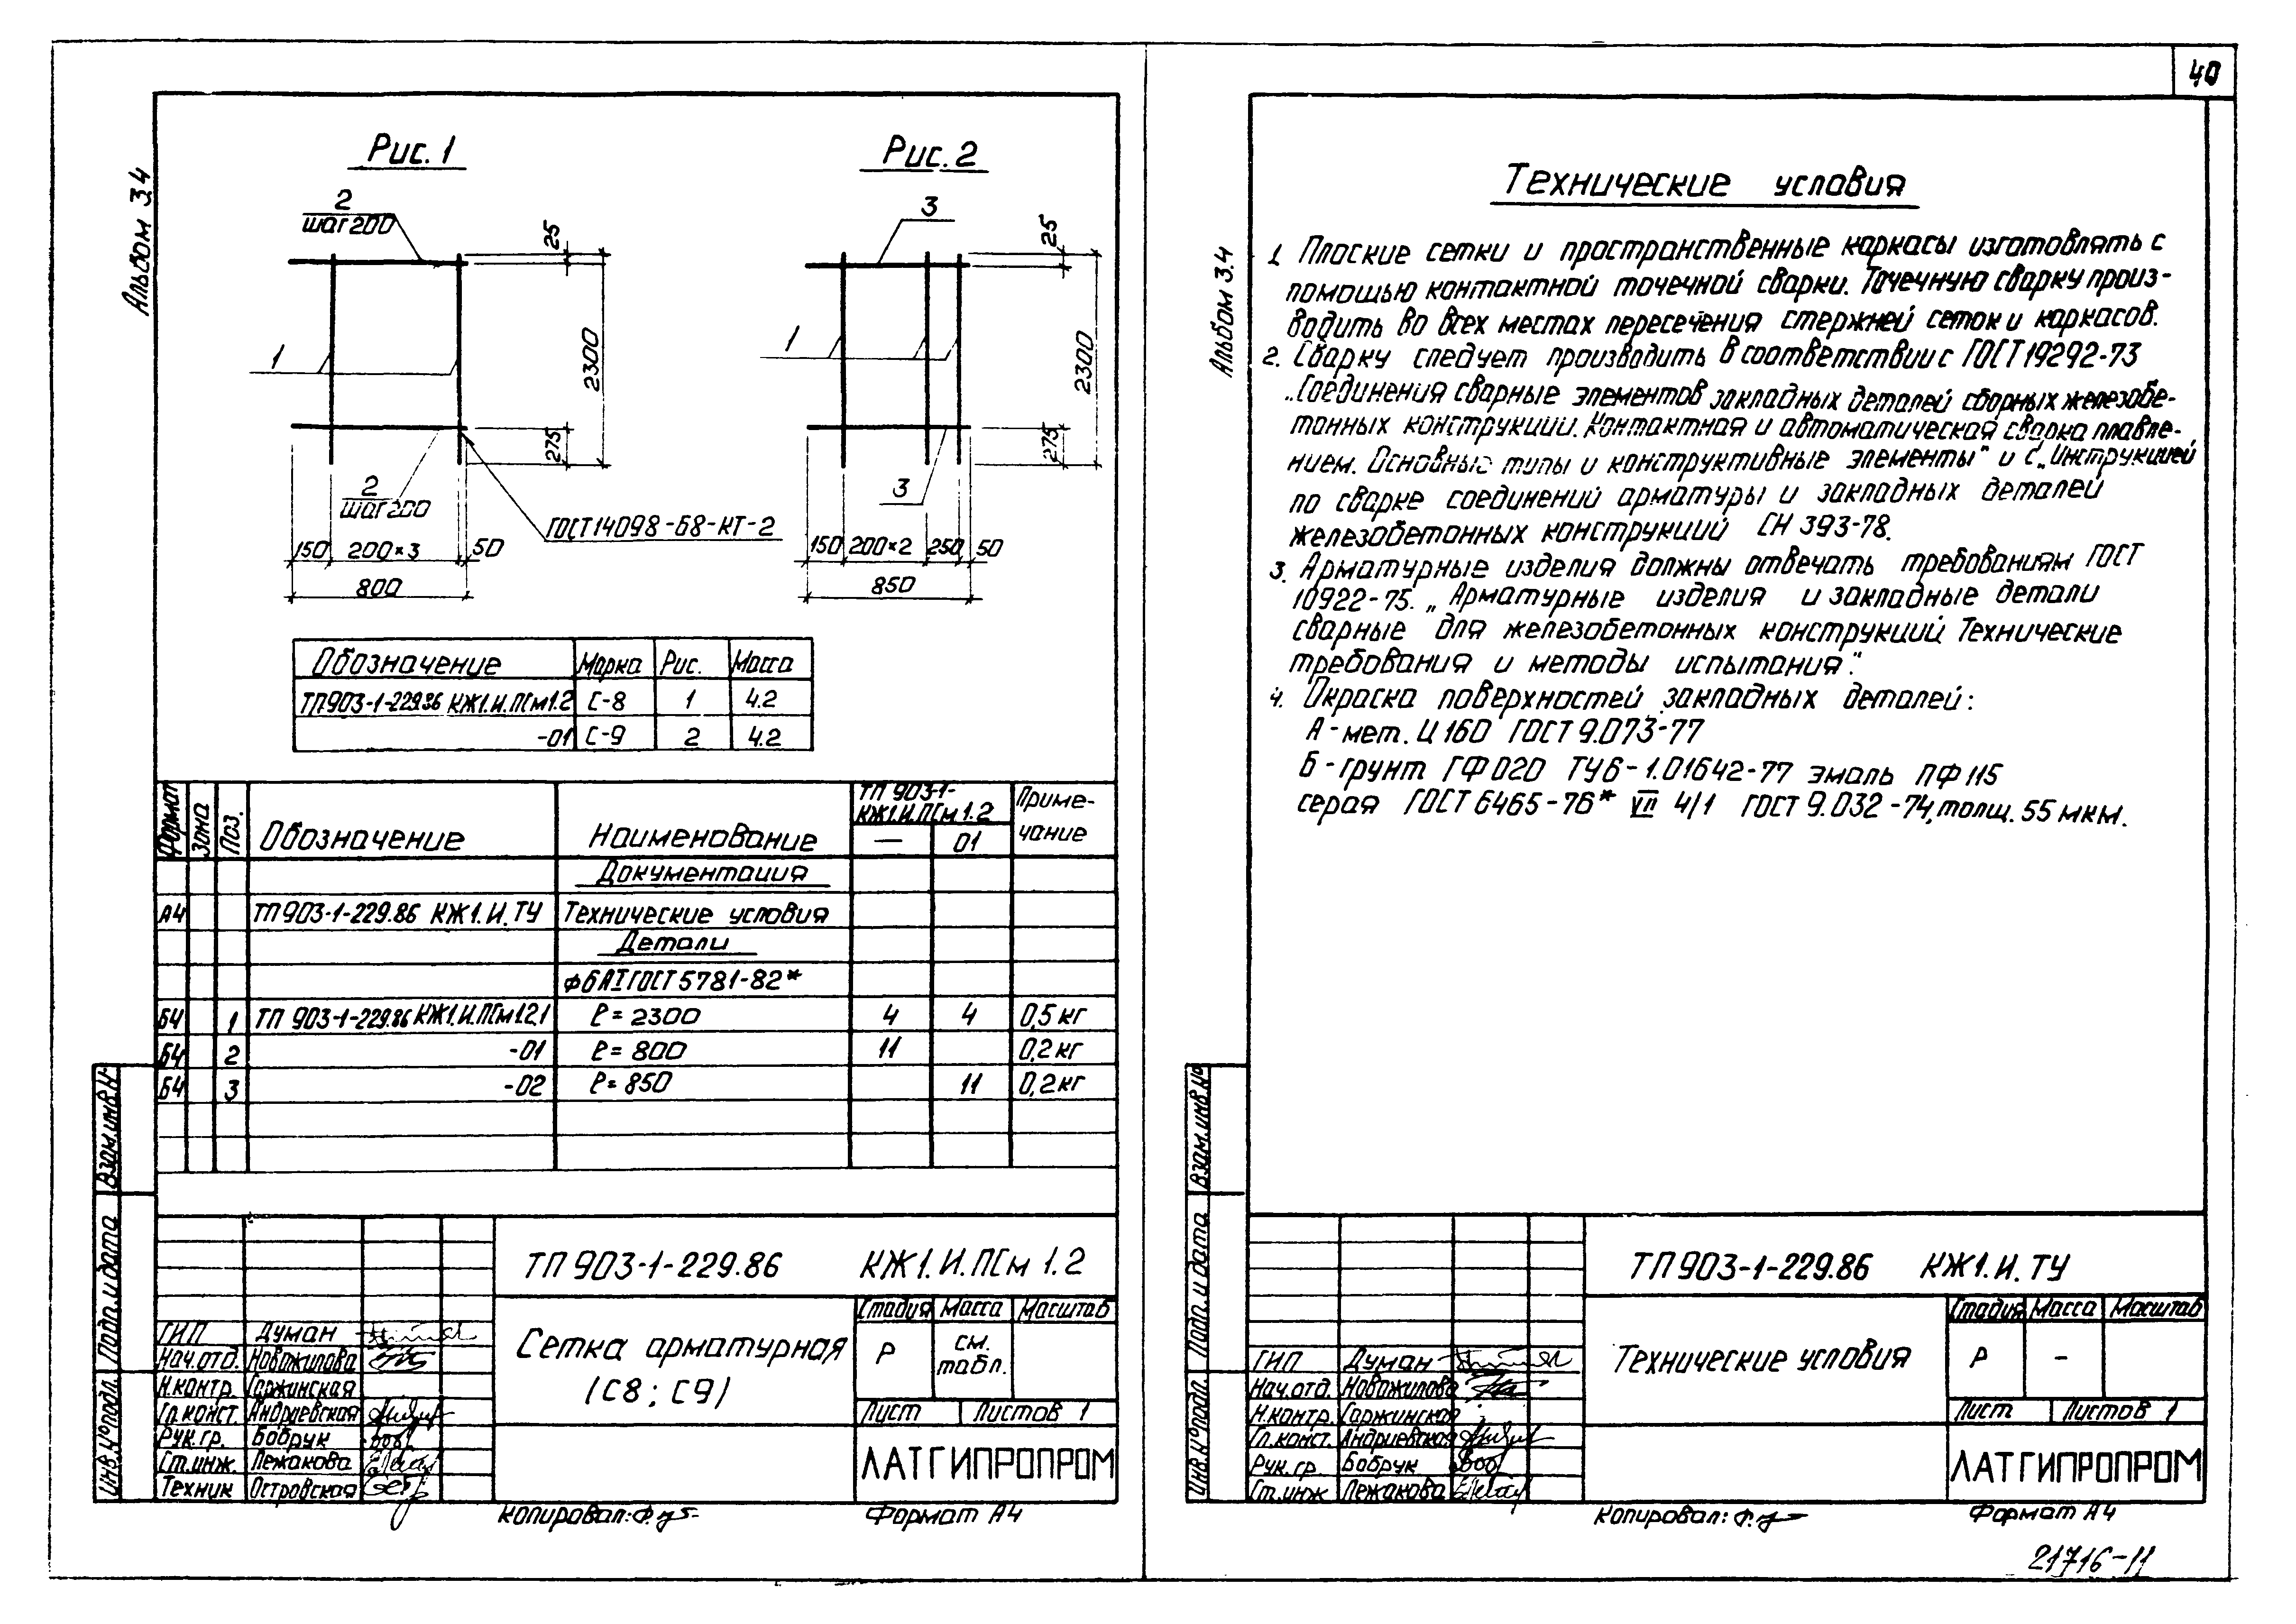 40
Альбом 3.4
Рис. 1
2
шаг 200
1
25
2300
275
2
шаг 200
ГОСТ 14098-68-КТ-2
150 200×3 50
800
Рис. 2
3
1
25
2300
275
3
150 200×2 250 50
850
Обозначение Марка Рис. Масса
ТП903-1-229.86 КЖ1.И.ПСм1.2 С-8 1 4.2
-01 С-9 2 4.2
Формат Зона Поз. Обозначение Наименование ТП 903-1- КЖ1.И.ПСм 1.2 Приме-
— 01 чание
Документация
А4 ТП903-1-229.86 КЖ1.И.ТУ Технические условия
Детали
ф6АI ГОСТ 5781-82*
Б4 1 ТП 903-1-229.86 КЖ1.И.ПСм1.2.1 ℓ=2300 4 4 0,5 кг
Б4 2 -01 ℓ=800 11 0,2 кг
Б4 3 -02 ℓ=850 11 0,2 кг
Взам.инв.№
Подп. и дата
Инв.№подл.
ТП903-1-229.86 КЖ1.И.ПСм 1.2
Сетка арматурная
(С8; С9)
Стадия Масса Масштаб
Р см. табл.
Лист Листов 1
ЛАТГИПРОПРОМ
ГИП Думан
Нач.отд. Новожилова
Н.контр. Гаржинская
Гл.конст. Андриевская
Рук.гр. Бобрук
Ст.инж. Лежакова
Техник Островская
Копировал:
Формат А4
Альбом 3.4
Технические условия
1. Плоские сетки и пространственные каркасы изготовлять с
помощью контактной точечной сварки. Точечную сварку произ-
водить во всех местах пересечения стержней сеток и каркасов.
2. Сварку следует производить в соответствии с ГОСТ 19292-73
„Соединения сварные элементов закладных деталей сборных железобе-
тонных конструкций. Контактная и автоматическая сварка плавле-
нием. Основные типы и конструктивные элементы" и с „Инструкцией
по сварке соединений арматуры и закладных деталей
железобетонных конструкций СН 393-78.
3. Арматурные изделия должны отвечать требованиям ГОСТ
10922-75. „Арматурные изделия и закладные детали
сварные для железобетонных конструкций. Технические
требования и методы испытания".
4. Окраска поверхностей закладных деталей:
А-мет. Ц 160 ГОСТ 9.073-77
Б-грунт ГФ 020 ТУ6-1.01642-77 эмаль ПФ 115
серая ГОСТ 6465-76* VII 4/1 ГОСТ 9.032-74, толщ. 55 мкм.
Взам.инв.№
Подп. и дата
Инв.№подл.
ТП903-1-229.86 КЖ1.И.ТУ
Технические условия
Стадия Масса Масштаб
Р -
Лист Листов 1
ЛАТГИПРОПРОМ
ГИП Думан
Нач.отд. Новожилова
Н.контр. Гаржинская
Гл.конст. Андриевская
Рук.гр. Бобрук
Ст.инж Лежакова
Копировал:
Формат А4
21716-11